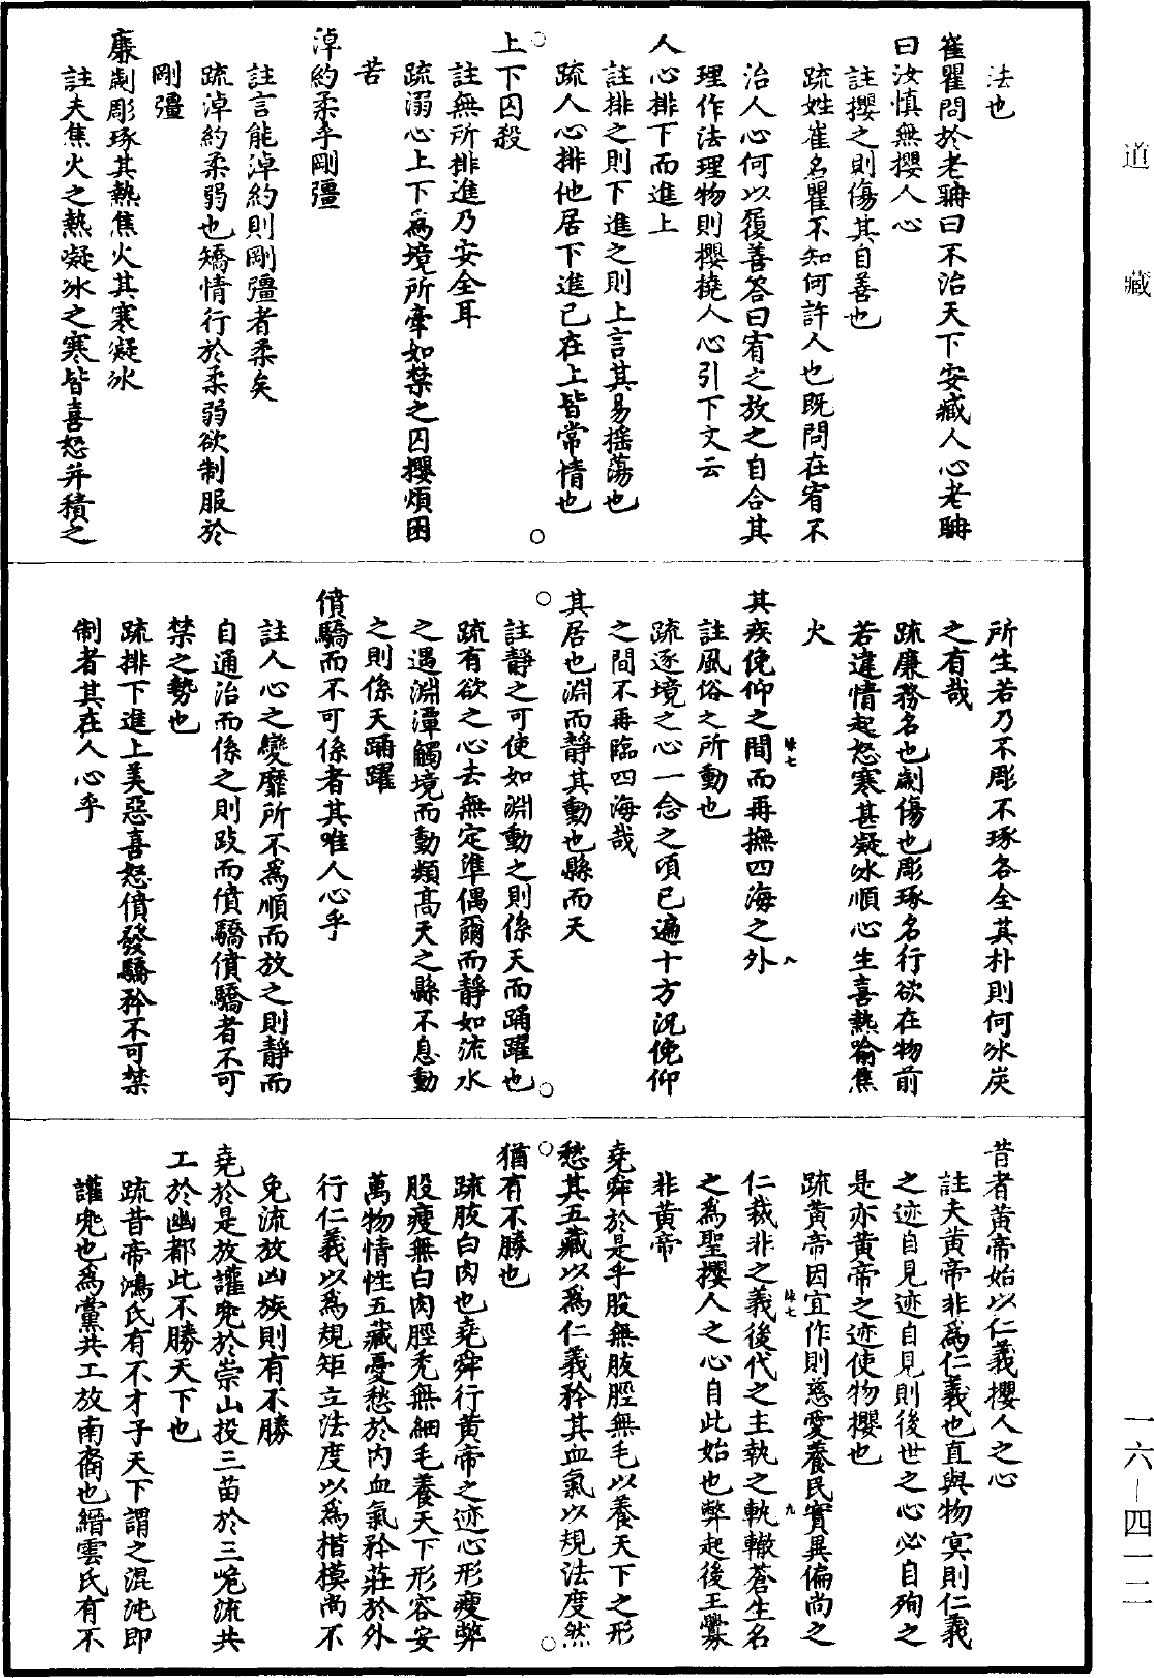 道藏
法也
崔瞿問於老聃曰不治天下安臧人心老聃
曰汝慎無攖人心
註攖之則傷其自善也
疏姓崔名瞿不知何許人也既問在宥不
治人心何以履善答曰宥之放之自合其
理作法理物則攖撓人心引下文云
人心排下而進上
註排之則下進之則上言其易搖蕩也
疏人心排他居下進己在上皆常情也
○上下囚殺○
註無所排進乃安全耳
疏溺心上下為境所牽如禁之囚攖煩困
苦
淖約柔乎剛彊
註言能淖約則剛彊者柔矣
疏淖約柔弱也矯情行於柔弱欲制服於
剛彊
廉劌彫琢其熱焦火其寒凝冰
註夫焦火之熱凝冰之寒皆喜怒并積之
所生若乃不彫不琢各全其朴則何冰炭
之有哉
疏廉務名也劌傷也彫琢名行欲在物前
若違情起怒寒甚凝冰順心生喜熱踰焦
火
其疾俛仰之間而再撫四海之外
註風俗之所動也
疏逐境之心一念之頃已遍十方況俛仰
之間不再臨四海哉
其居也淵而靜其動也縣而天
○註靜之可使如淵動之則係天而踊躍也○
疏有欲之心去無定準偶爾而靜如流水
之遇淵潭觸境而動類高天之縣不息動
之則係天踊躍
僨驕而不可係者其唯人心乎
註人心之變靡所不為順而放之則靜而
自通治而係之則跂而僨驕僨驕者不可
禁之勢也
疏排下進上美惡喜怒僨發驕矜不可禁
制者其在人心乎
昔者黃帝始以仁義攖人之心
註夫黃帝非為仁義也直與物冥則仁義
之迹自見迹自見則後世之心必自殉之
是亦黃帝之迹使物攖也
疏黃帝因宜作則慈愛養民實異偏尚之
仁裁非之義後代之主執之軌轍蒼生名
之為聖攖人之心自此始也弊起後王釁
非黃帝
堯舜於是乎股無胈脛無毛以養天下之形
○愁其五藏以為仁義矜其血氣以規法度然○
猶有不勝也
疏胈白肉也堯舜行黃帝之迹心形瘦弊
股瘦無白肉脛禿無細毛養天下形容安
萬物情性五藏憂愁於內血氣矜莊於外
行仁義以為規矩立法度以為楷模尚不
免流放凶族則有不勝
堯於是放讙兜於崇山投三苗於三峗流共
工於幽都此不勝天下也
疏昔帝鴻氏有不才子天下謂之混沌即
讙兜也為黨共工放南裔也縉雲氏有不
一六—四一二